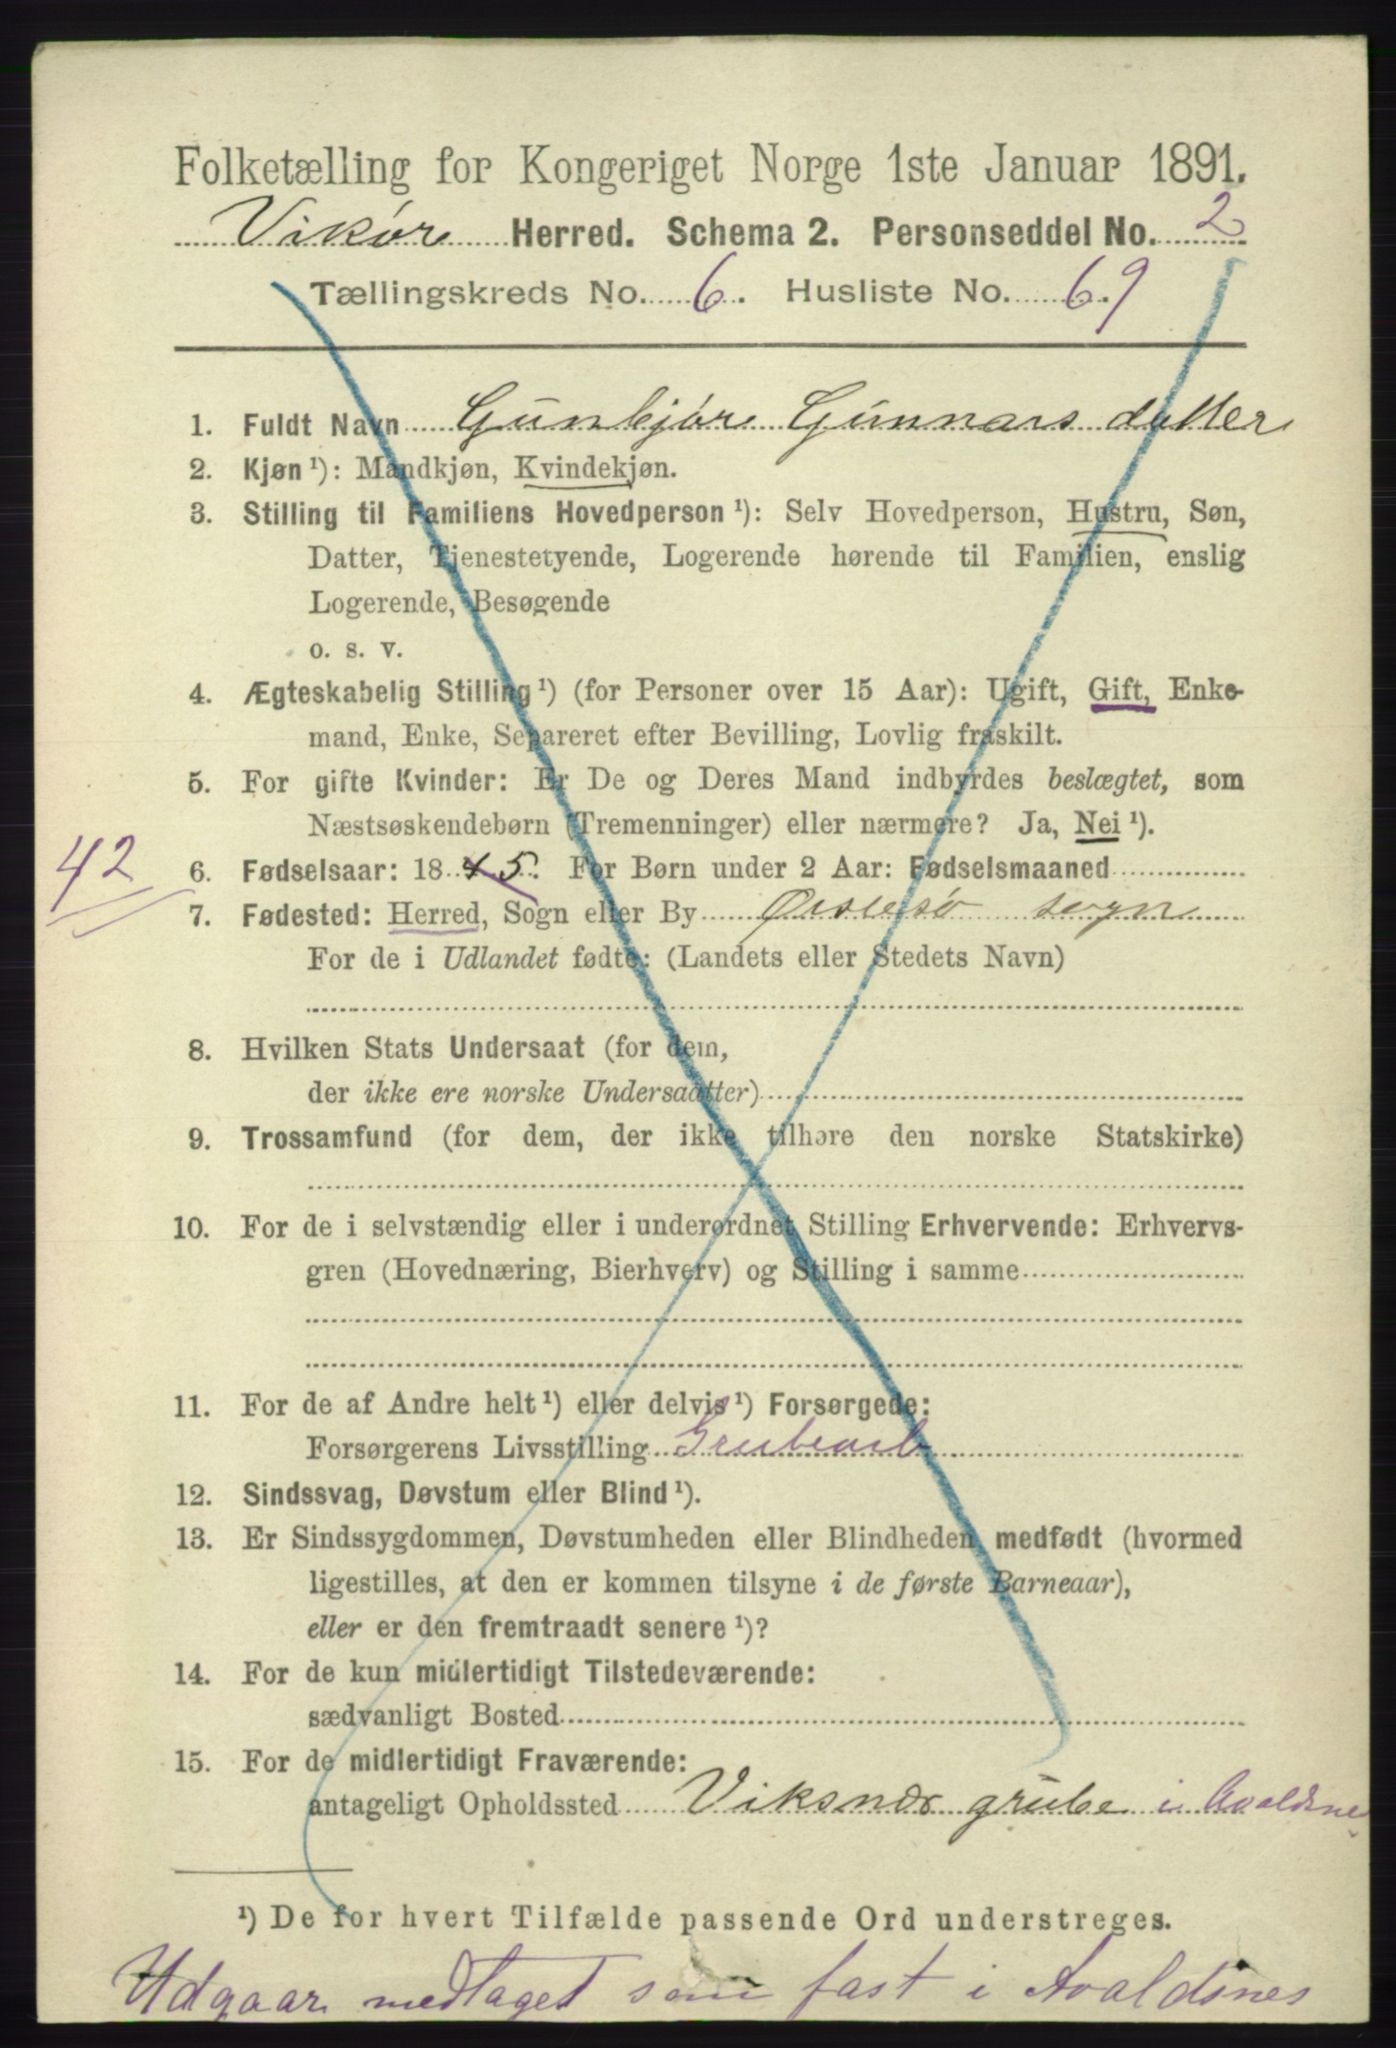 Folketælling for Kongeriget Norge 1ste Januar 1891.
Vikør Herred. Schema 2. Personseddel No. 2
Tællingskreds No. 6. Husliste No. 69
1. Fuldt Navn Gunbjør Gunnarsdatter
2. Kjøn ¹): Mandkjøn, Kvindekjøn.
3. Stilling til Familiens Hovedperson ¹): Selv Hovedperson, Hustru, Søn,
Datter, Tjenestetyende, Logerende hørende til Familien, enslig
Logerende, Besøgende
o. s. v.
4. Ægteskabelig Stilling ¹) (for Personer over 15 Aar): Ugift, Gift, Enke-
mand, Enke, Separeret efter Bevilling, Lovlig fraskilt.
5. For gifte Kvinder: Er De og Deres Mand indbyrdes beslægtet, som
Næstsøskendebørn (Tremenninger) eller nærmere? Ja, Nei ¹).
42
6. Fødselsaar: 1845. For Børn under 2 Aar: Fødselsmaaned
7. Fødested: Herred, Sogn eller By Øistesø sogn
For de i Udlandet fødte: (Landets eller Stedets Navn)
8. Hvilken Stats Undersaat (for dem,
der ikke ere norske Undersaatter)
9. Trossamfund (for dem, der ikke tilhøre den norske Statskirke)
10. For de i selvstændig eller i underordnet Stilling Erhvervende: Erhvervs-
gren (Hovednæring, Bierhverv) og Stilling i samme
11. For de af Andre helt ¹) eller delvis ¹) Forsørgede:
Forsørgerens Livsstilling Grubearb
12. Sindssvag, Døvstum eller Blind ¹).
13. Er Sindssygdommen, Døvstumheden eller Blindheden medfødt (hvormed
ligestilles, at den er kommen tilsyne i de første Barneaar),
eller er den fremtraadt senere ¹)?
14. For de kun midlertidigt Tilstedeværende:
sædvanligt Bosted
15. For de midlertidigt Fraværende:
antageligt Opholdssted Viksnær grube i Avaldsne
¹) De for hvert Tilfælde passende Ord understreges.
Udgaar medtaget som fast i Avaldsnes